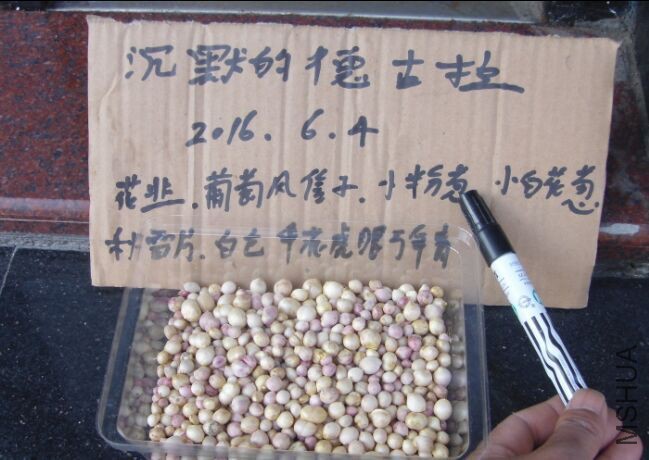 沉默的德古拉
2016.6.4
花韭.葡萄风信子.小粉葱 小白花葱
秋雪片.白色 伞花虎眼万年青
MSHUA